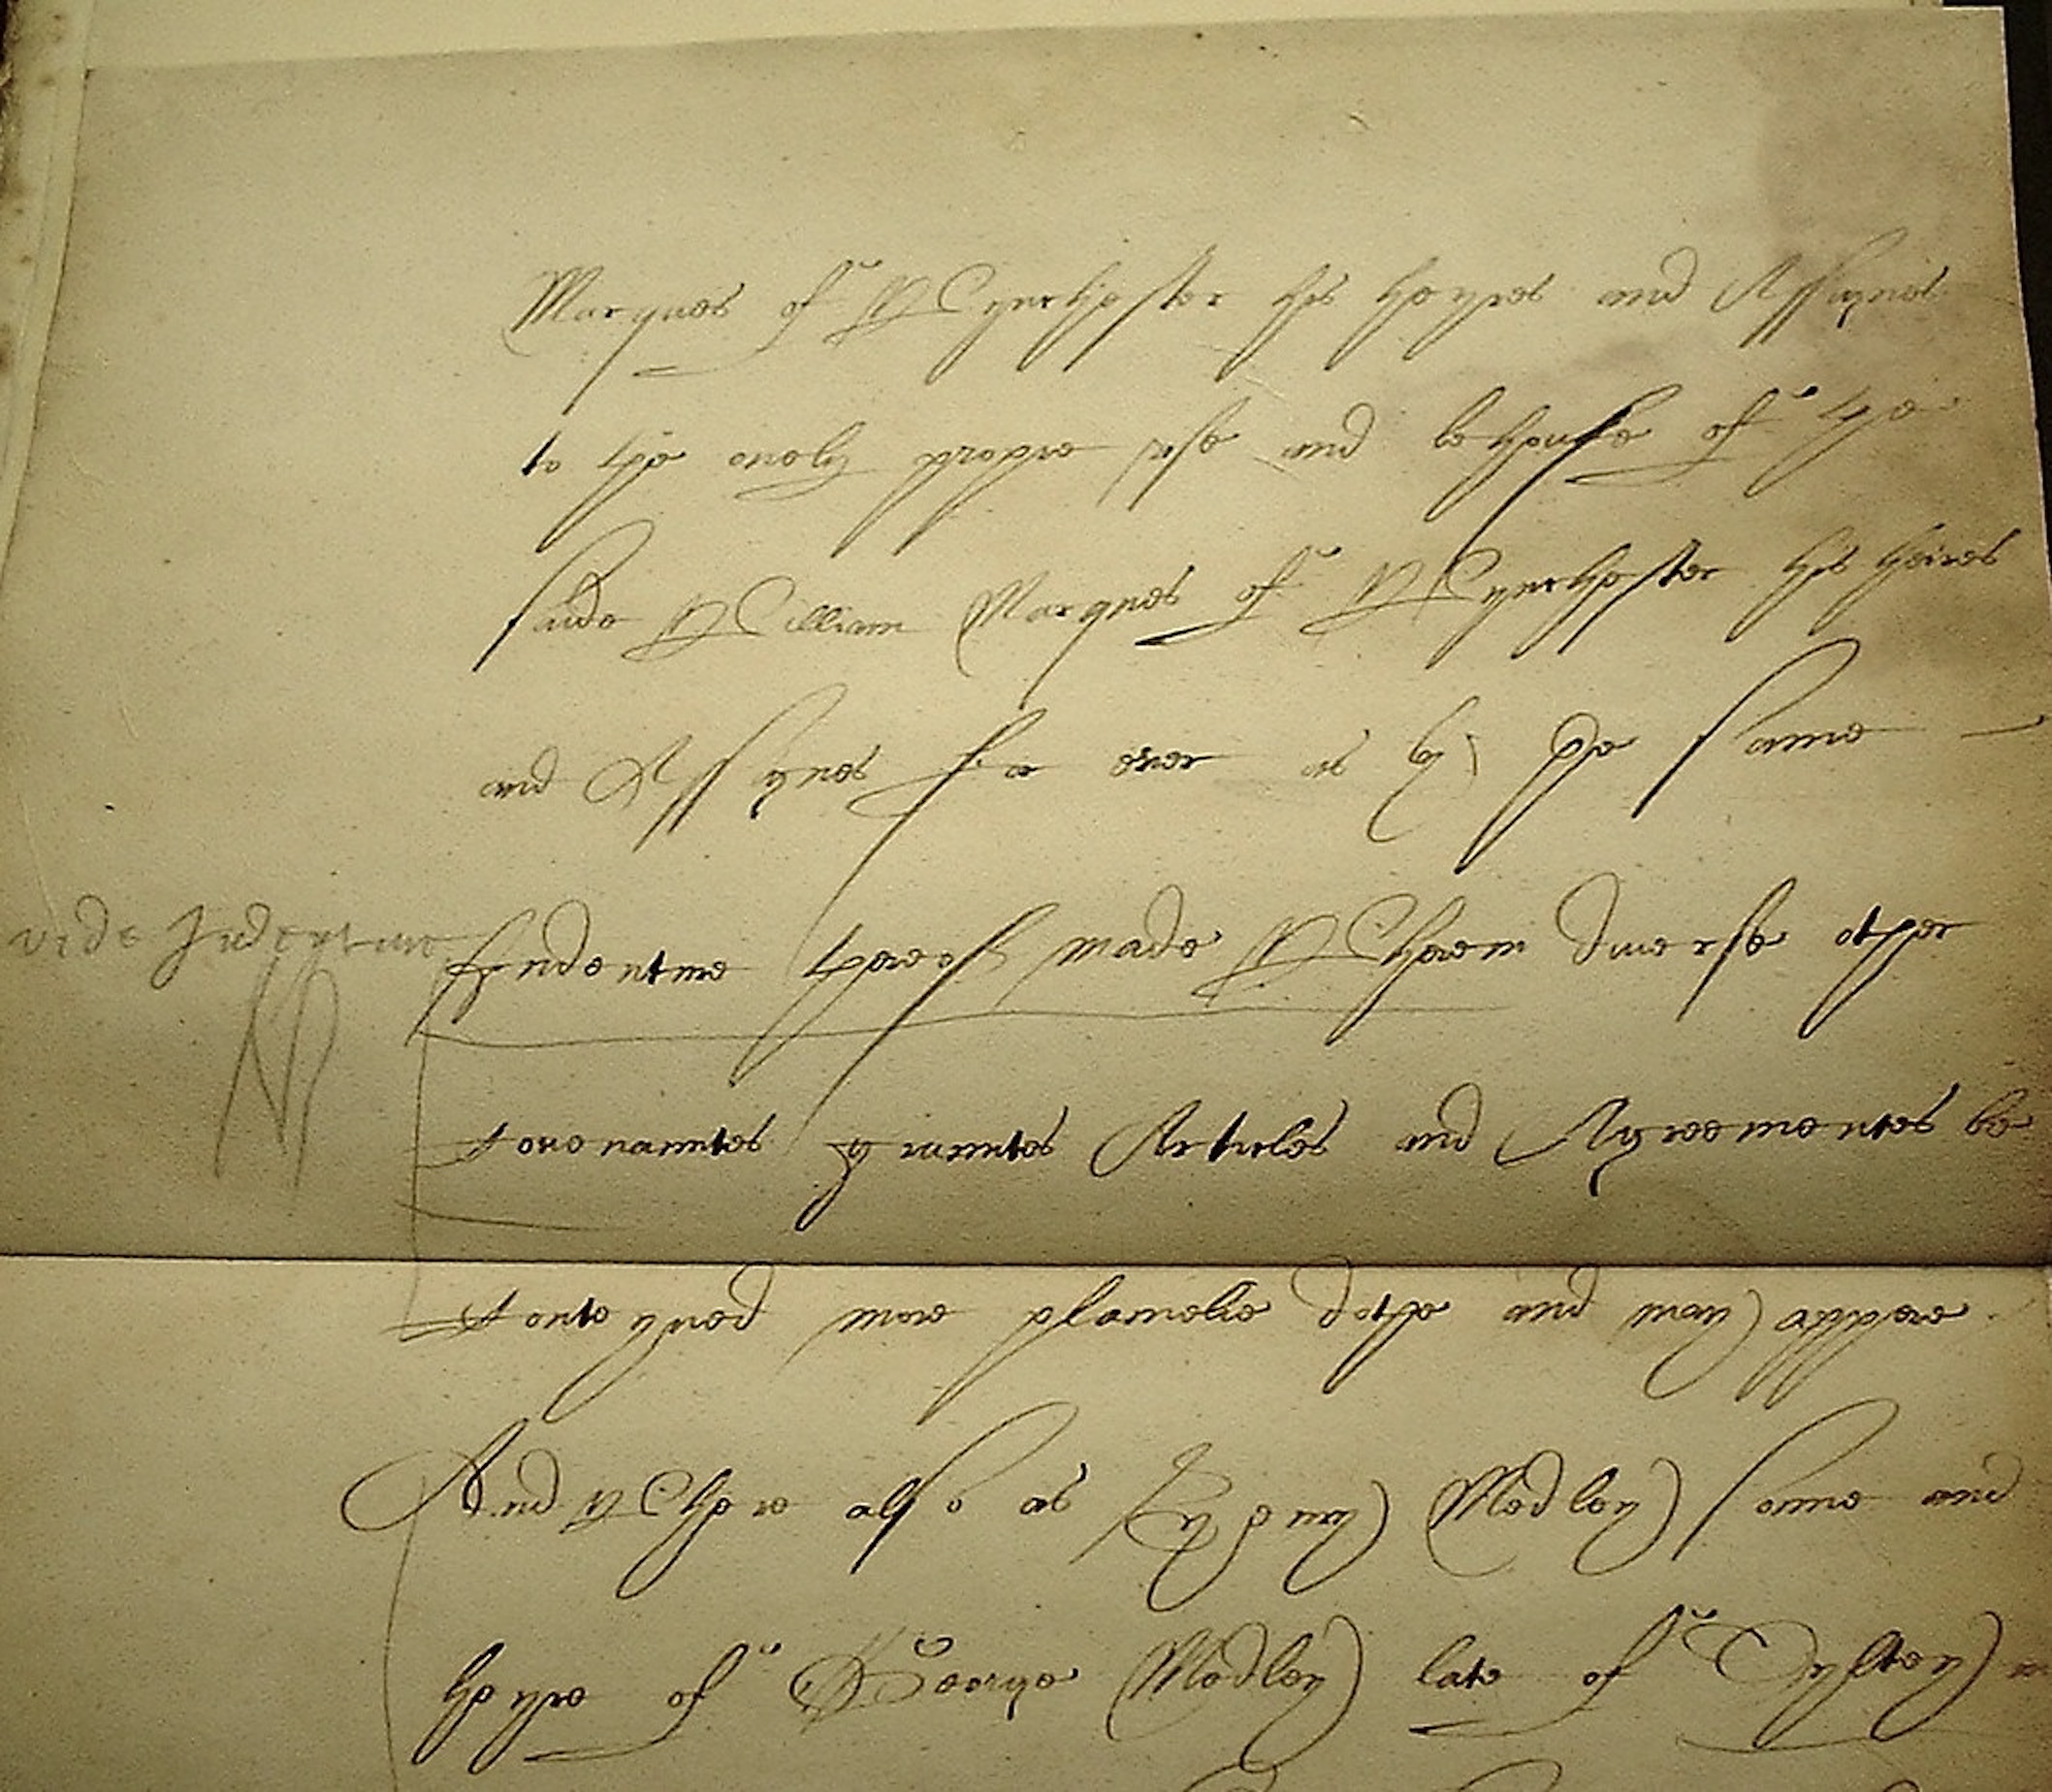 Marques of Wynchester his heyres and Assignes
to the onely propre use and behoufe of the
saide William Marques of Wynchester his heires
and Assignes for ever as by the same
vide Indenture Indenture thereof made Wherein diverse other
Covenauntes grauntes Articles and Agreementes be
conteyned more plainelie dothe and may appere
And Where also as Henry Medley sonne and
heyre of George Medley late of Tyltey